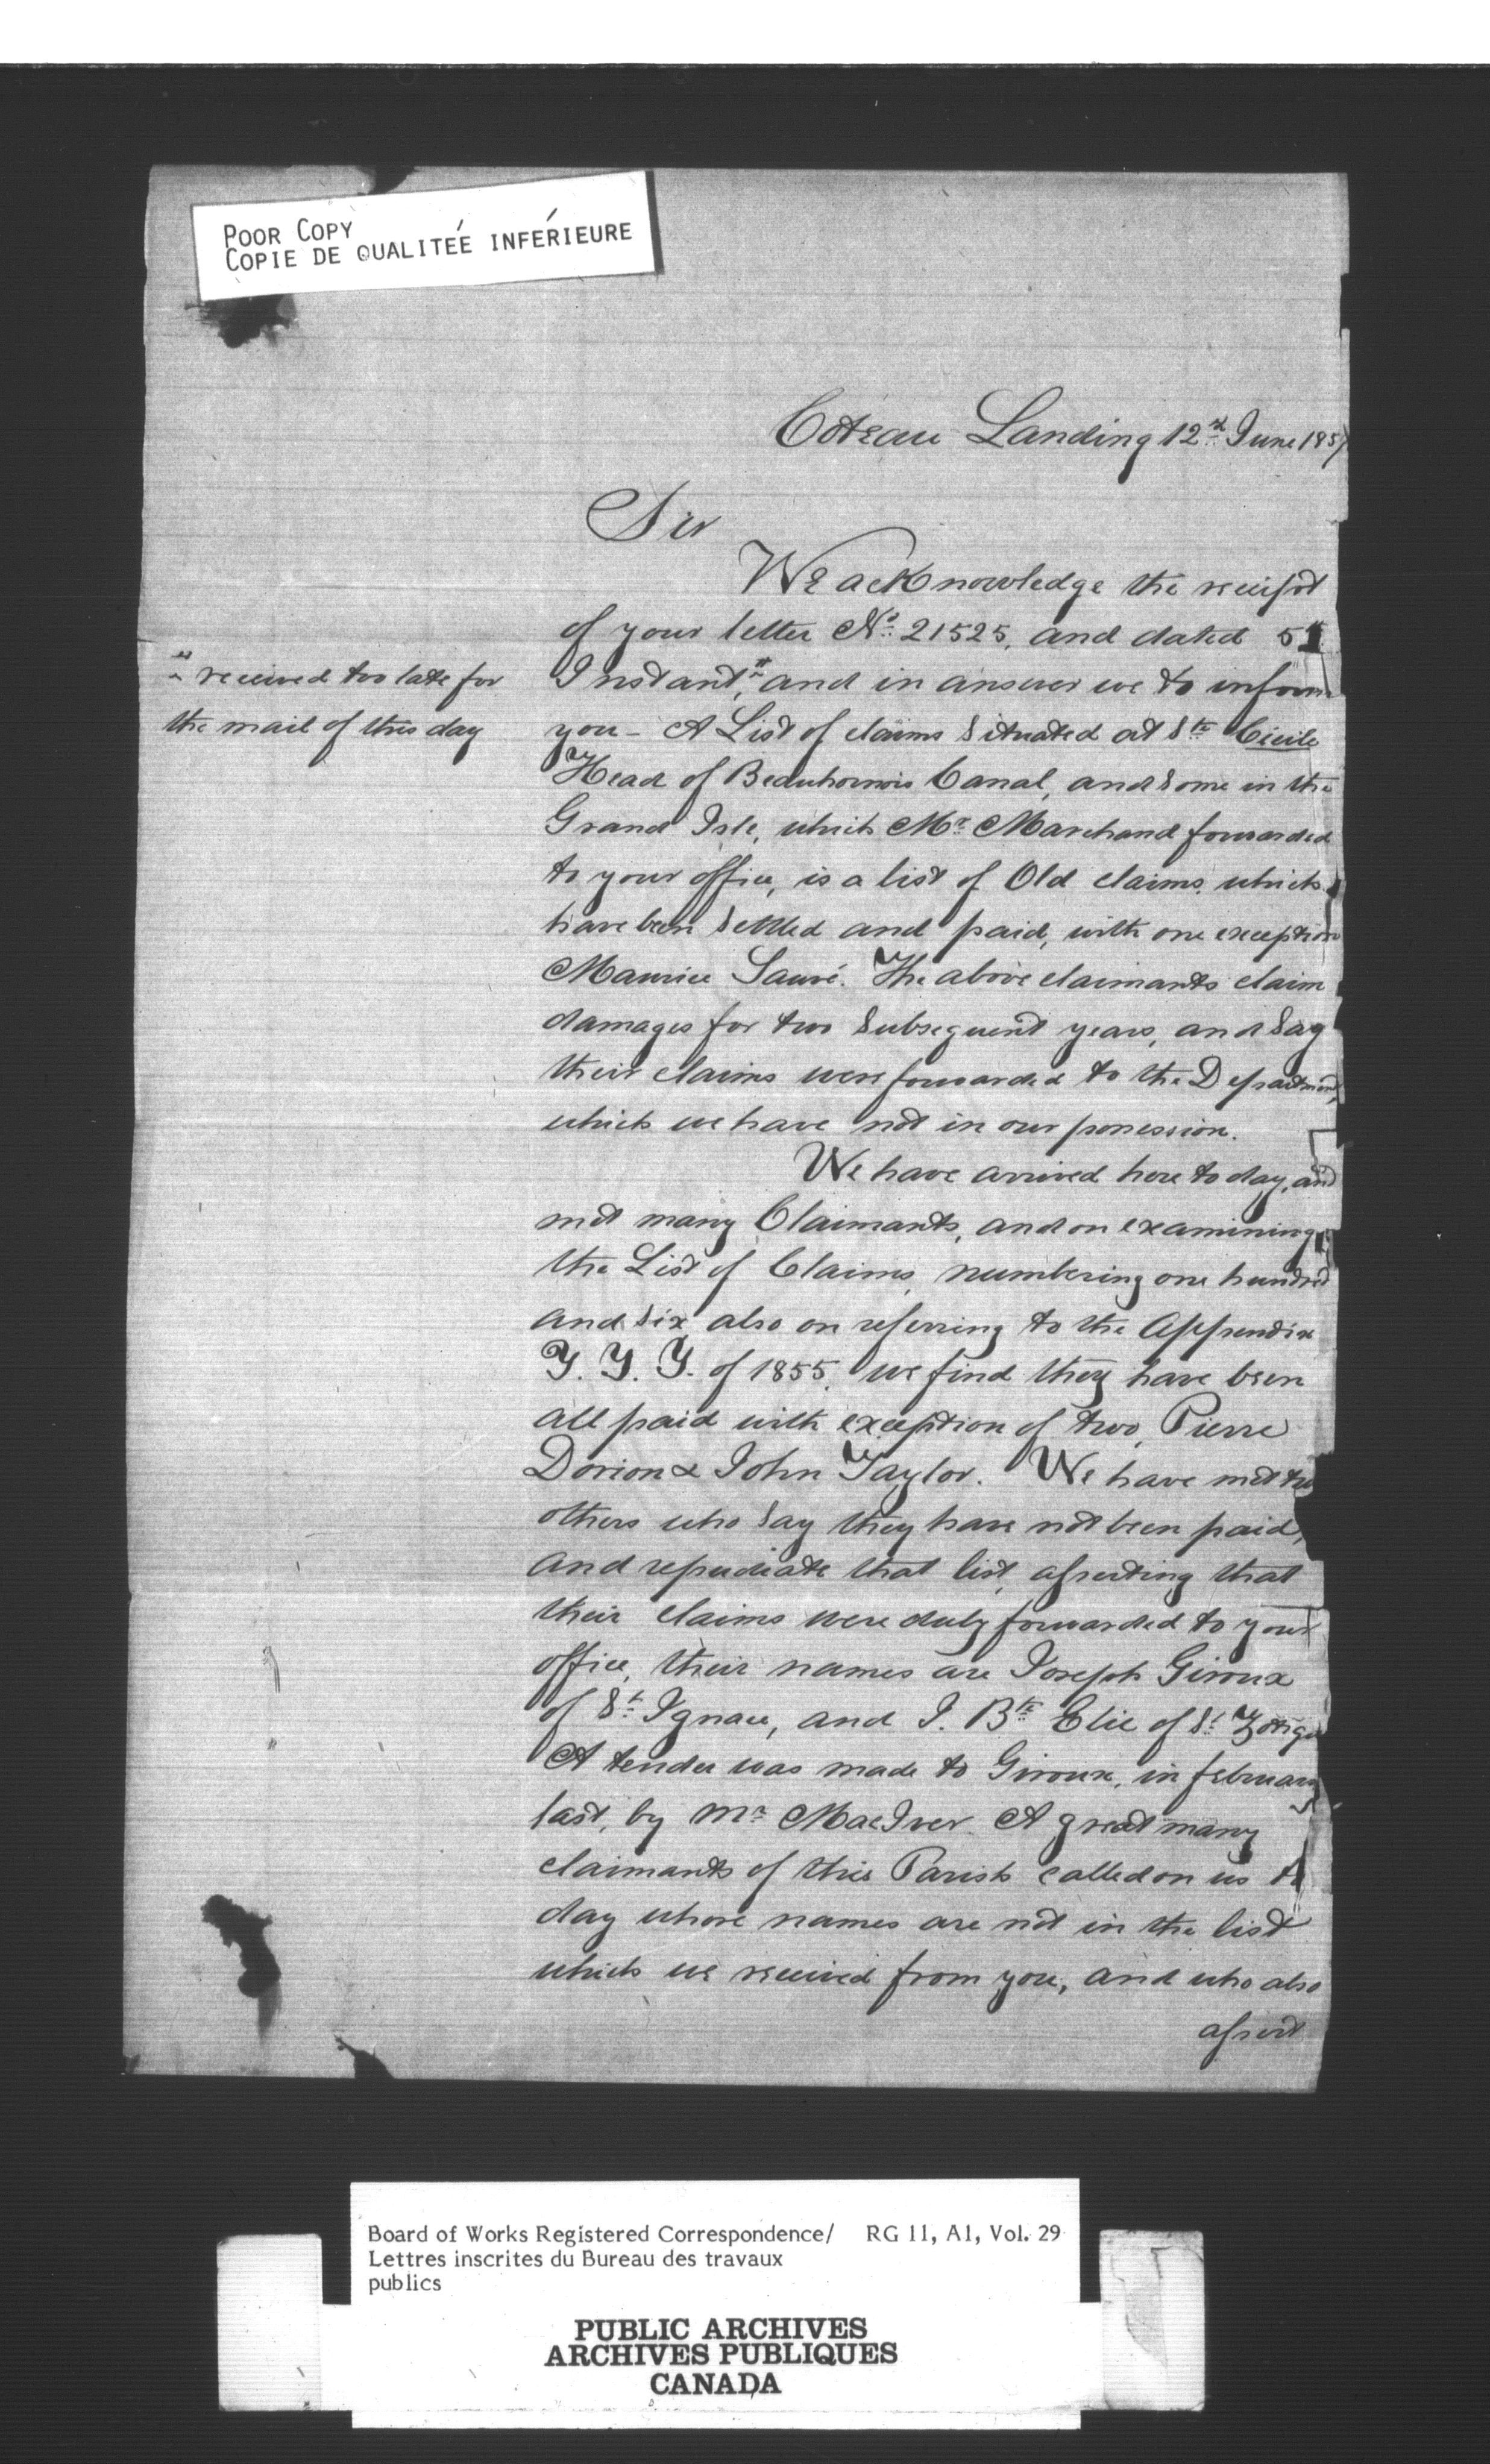 POOR COPY
COPIE DE QUALITEÉ INFÉRIEURE
Coteau Landing 12th June 1857
Sir
We acknowledge the receipt
of your letter No. 21525, and dated 5th
Instant,* and in answer we to inform
* received too late for
the mail of this day
you - A List of claims situated at Ste Cicile
Head of Beauharnois Canal, and some in the
Grand Isle, which Mr. Marchand forwarded
to your office, is a list of Old claims, which
have been settled and paid, with one exception
Maurice Sauvé. The above claimants claim
damages for two subsequent years, and say
their claims were forwarded to the Department,
which we have not in our possession.
We have arrived here to day, and
met many Claimants, and on examining
the List of Claims, numbering one hundred
and six, also on referring to the Appendix
Y. Y. Y. of 1855, we find they have been
all paid with exception of two, Pierre
Dorion & John Taylor. We have met two
others who say they have not been paid,
and repudiate that list, asserting that
their claims were duly forwarded to your
office, their names are Joseph Giroux
of St. Ignace, and J. Bte Elie of St. Zotique
A tender was made to Giroux, in february
last, by Mr. MacIver. A great many
claimants of this Parish called on us to
day whose names are not in the list
which we received from you, and who also
assert
Board of Works Registered Correspondence/ RG 11, A1, Vol. 29
Lettres inscrites du Bureau des travaux
publics
PUBLIC ARCHIVES
ARCHIVES PUBLIQUES
CANADA